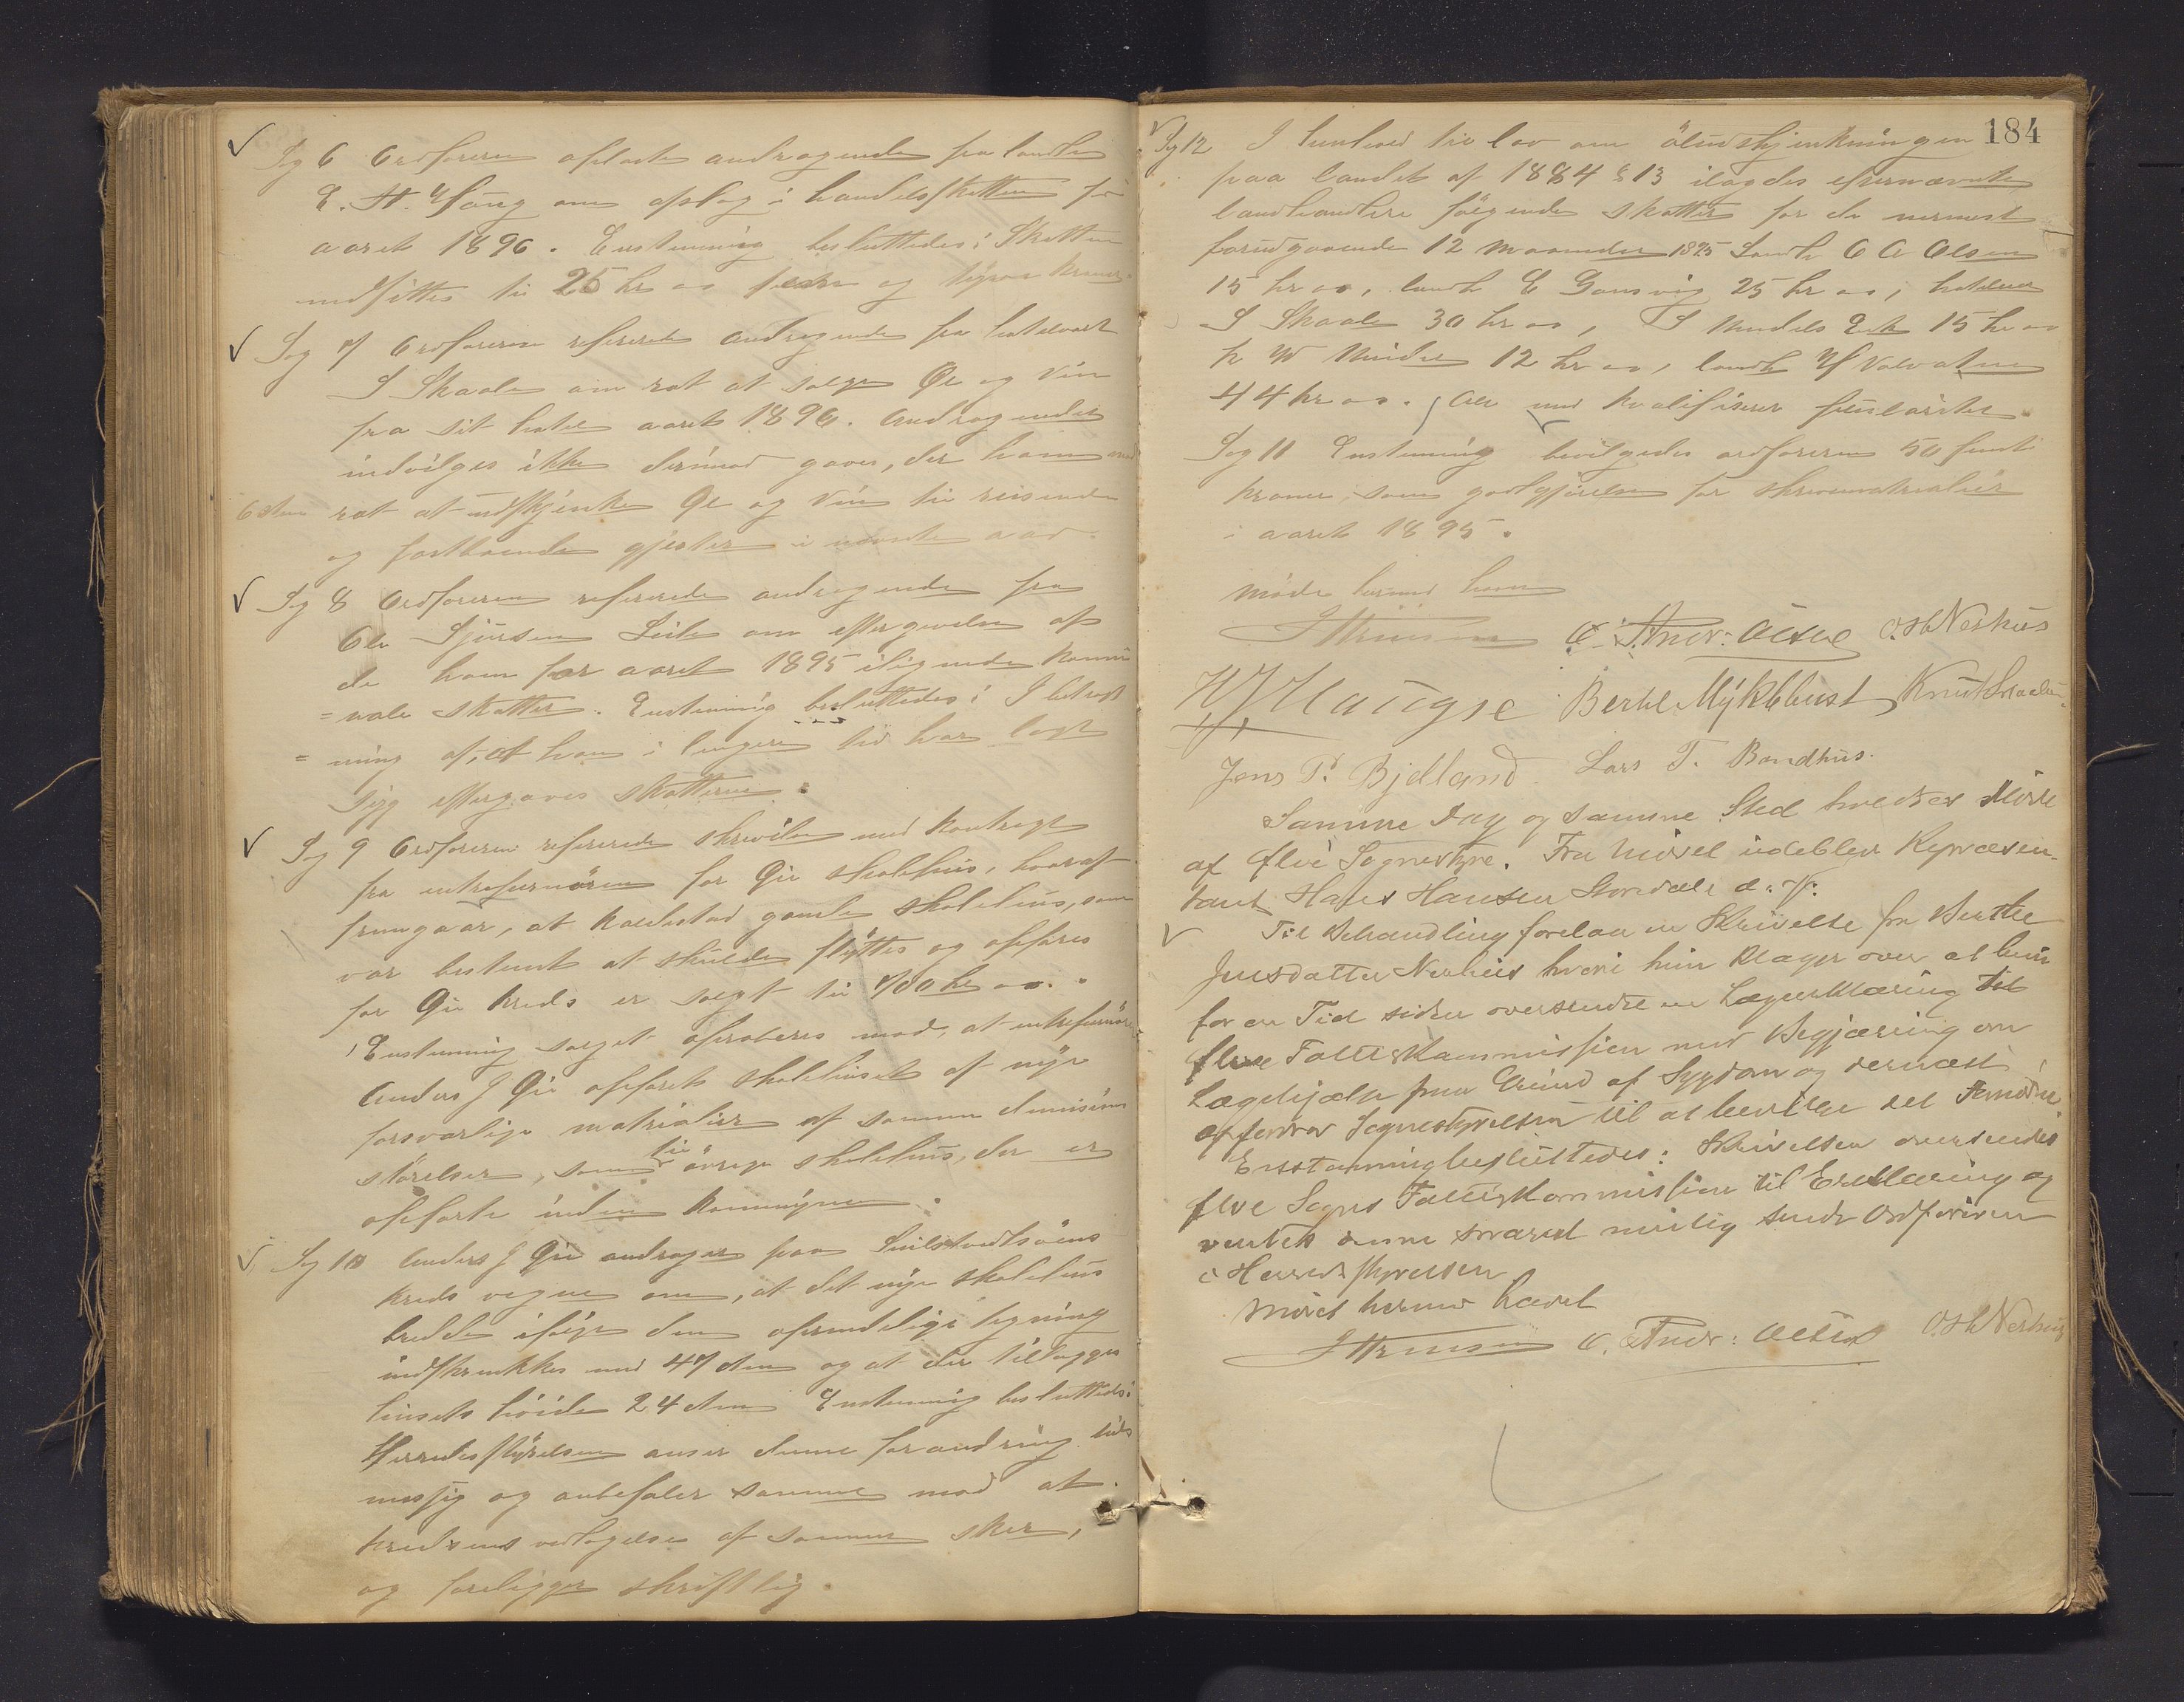 Sag 6 Ordføreren oplæste andragende fra landh
E. H. Haug om afslag i handelsskatten for
aaret 1896. Enstemmig besluttedes: Skatten
nedsættes til 25 kr oo fem og tyve kroner.
Sag 7 Ordføreren refererede andragende fra hotelvært
S Skaale om ret at sælge Øl og Vin
fra sit hotel aaret 1896. Andragendet
indvilges ikke derimod gaves, der ham
ret at udskjænke Øl og Vin til reisende
og fastboende gjester i næste aar.
Sag 8 Ordføreren refererede andragende fra
Ole Sjursen Leite om eftergivelse af
de ham for aaret 1895 iligende kommu
=nale skatter. Enstemmig besluttedes: I betragt
=ning af, at han i længere tid har lagt
syg eftergaves skatterne.
Sag 9 Ordføreren refererede skrivelse med kontragt
fra entreprenøren for Øie skolehus, hvoraf
fremgaar, at Kaldestad gamle skolehus, som
var bestemt at skulde flyttes og opføres
for Øie kreds er solgt til 700 kr oo.
Enstemmig salget aproberes mod, at entreprenøren
Anders J Øie opførte skolehuset af nye
forsvarlige matrialier af samme dimisions
størelser, som til øvrige skolehus, der er
opførte inden Kommunen.
Sag 10 Anders J Øie andrager paa
kreds vegne om, at det nye skolehus
bredde ifølge den oprindelige tegning
indskrænkes med 47 ctm og at der tillægges
husets høide 24 ctm Enstemmig besluttedes:
Herredsstyrelsen anser denne forandring hids
messig og anbefaler samme mod at
kredsens vedtagelse af samme sker,
og foreligger skriftlig.
184
Sag 12 I henhold til lov om øludskjænkningen
paa landet af 1884 § 13 ilagdes efternævnte
landhandlere følgende skatter for de nærmest
forudgaaende 12 maaneder 1895 Landh O A Olsen
15 kr oo, landh E Gansvig 25 kr oo, hoteleier
S Skaale 30 kr oo, S 15 kr oo
12 kr oo, landh
44 kr oo. Alle med kvalifiserer
Sag 11 Enstemmig bevilgedes ordføreren 50 femti
kroner, som godtgjørelse for skrivematrialier
i aaret 1895.
Møde hermed hævet
O. Andr: Olsen O. H. Nerhus
Haugse Bertel Myklebust Knut
Jens P. Bjelland Lars T. Bondhus.
Samme Dag og samme Sted holdtes Møde
af Ølve Sognestyre. Fra Mødet udeblev Repræsen-
tant Hans Hansen d: Y.
Til Behandling forelaa en Skrivelse fra Berthe
Jensdatter Nerhus hvori hun klager over at hun
for en Tid siden oversendte en Lægeerklæring til
Ølve Fattigkommission med Begjæring om
Lægehjælp paa Grund af Sygdom og dernæst
opfordrer Sognestyrelsen til at bevilge det
Enstemmig besluttedes: Skrivelsen oversendes
Ølve Sogns Fattigkommission til Erklæring og
ventes denne snarest mulig sendt Ordføreren
i Herredsstyrelsen
Mødet hermed hævet
O. Andr: Olsen O. H. Nerhus